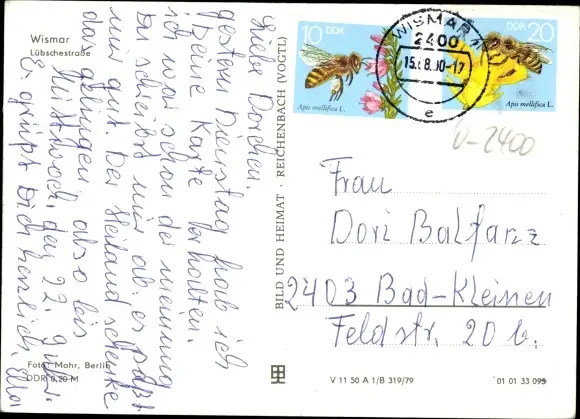 Wismar
Lübschestraße
Liebe Dorchen.
gestern Dienstag hab ich
Deine Karte erhalten.
ich war schon der meinung
Du schreibst mir ab. es paßt
mir gut. Der Heiland schenke
das gelingen also bis
Mittwoch, den 22.
Es grüßt Dich herzlich,
Foto: Mohr, Berlin
DDR 0,20 M
BILD UND HEIMAT · REICHENBACH (VOGTL)
10 DDR
Apis mellifica L.
DDR 20
Apis mellifica L.
WISMAR
2400
15.-8.90-17
e
V-2400
Frau
Dori Balfanz
2403 Bad-Kleinen
Feldstr. 20 b.
V 11 50 A 1/B 319/79
01 01 33 095